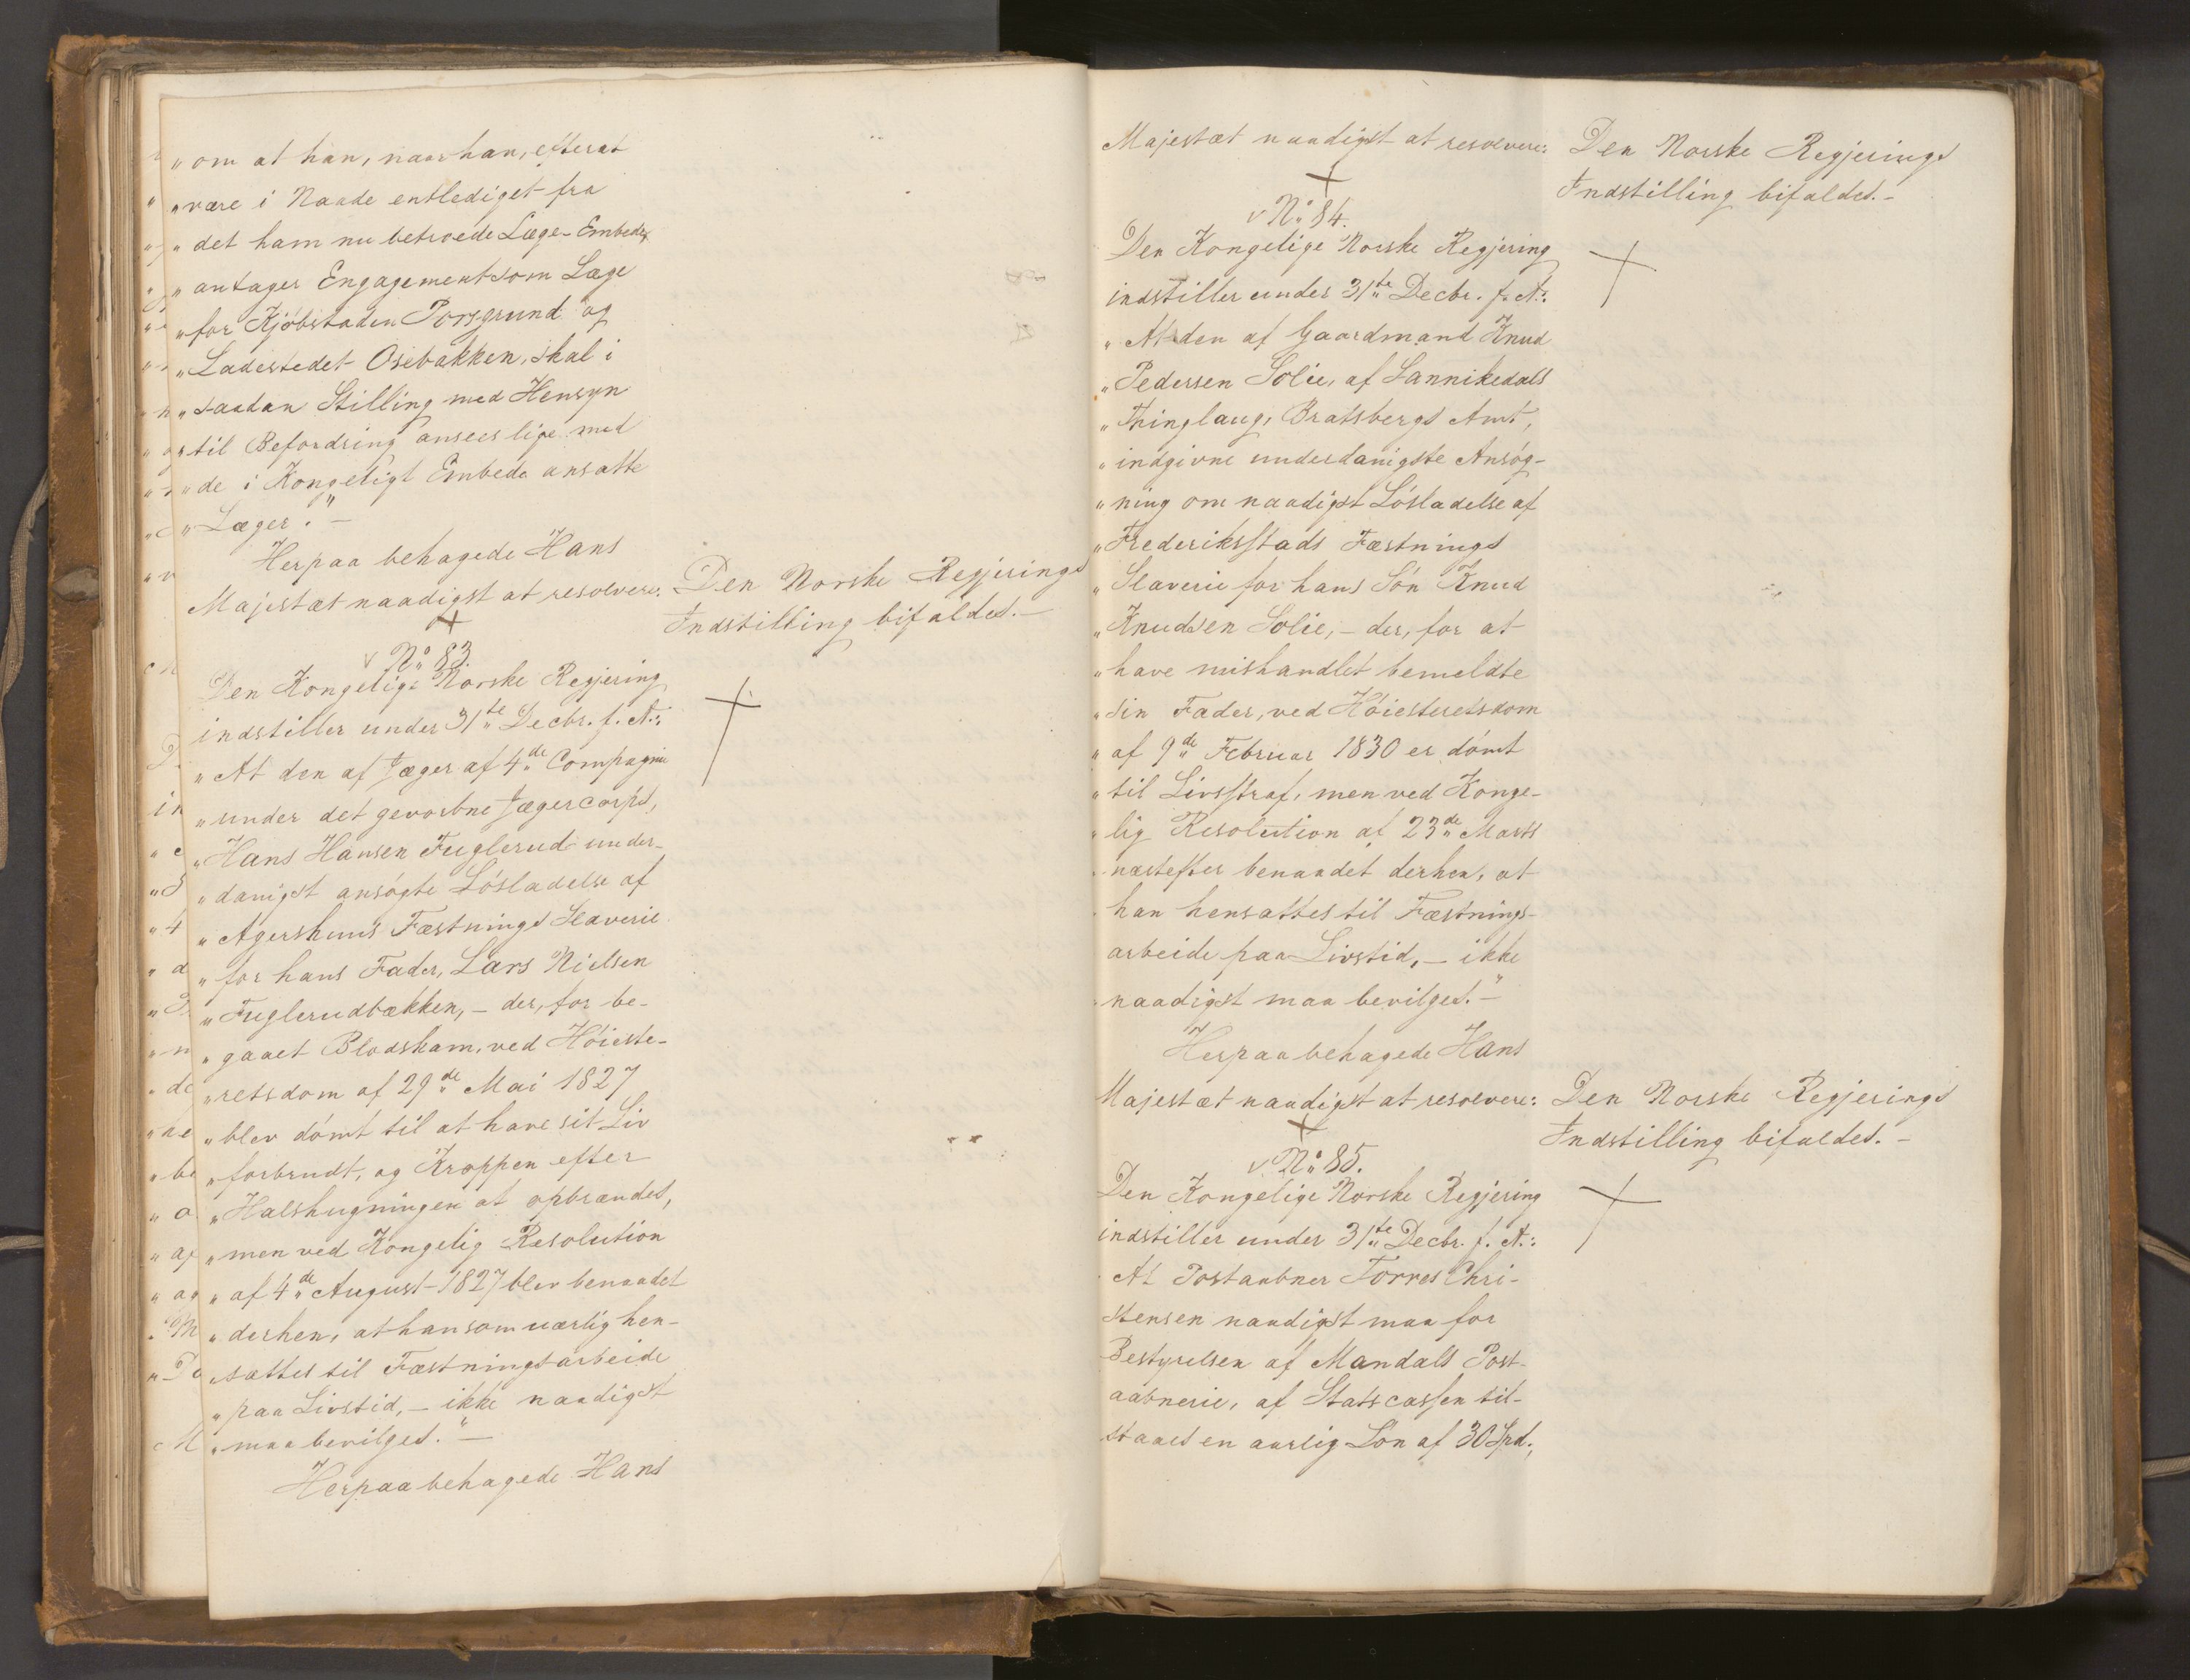 „om at han, naar han, efterat
„være i Naade entlediget fra
„det ham nu betroede Læge-Embede,
„antager Engagement som Læge
„for Kjöbstaden Porsgrund og
„Ladestedet Osebakken, skal i
„saadan Stilling med Hensyn
„til Befordring ansees lige med
„de i Kongeligt Embede ansatte
„Læger."—
Herpaa behagede Hans
Majestæt naadigst at resolvere:
Den Norske Regjerings
Indstilling bifaldes.—
No 83.
Den Kongelige Norske Regjering
indstiller under 31te Decbr. f. A.:
„At den af Jæger af 4de Compagnie
„under det gevorbne Jægercorps,
„Hans Hansen Fuglerud under-
„danigst ansögte Lösladelse af
„Agershuus Fæstnings Slaverie
„for hans Fader, Lars Nielsen
„Fuglerudbakken, – der, for be-
„gaaet Blodskam, ved Höieste-
„retsdom af 29de Mai 1827
„blev dömt til at have sit Liv
„forbrudt, og Kroppen efter
„Halshugningen at opbrændes,
„men ved Kongelig Resolution
„af 4de August 1827 blev benaadet
„derhen, at han som uærlig hen-
„sættes til Fæstningsarbeide
„paa Livstid, – ikke naadigst
„maa bevilges."—
Herpaa behagede Hans
Majestæt naadigst at resolvere:
Den Norske Regjerings
Indstilling bifaldes.-
No 84.
Den Kongelige Norske Regjering
indstiller under 31te Decbr. f. A.:
„At den af Gaardmand Knud
„Pedersen Solie, af Sannikedals
„Thinglaug, Bratsbergs Amt,
„indgivne underdanigste Ansög-
„ning om naadigst Lösladelse af
„Frederiksstads Fæstnings
„Slaverie for hans Sön Knud
„Knudsen Solie, – der, for at
„have mishandlet bemeldte
„sin Fader, ved Höiesteretsdom
„af 9de Februar 1830 er dömt
„til Livsstraf, men ved Konge-
„lig Resolution af 23de Marts
„næstefter benaadet derhen, at
„han hensattes til Fæstnings-
arbeide paa Livstid, – ikke
„naadigst maa bevilges."—
Herpaa behagede Hans
Majestæt naadigst at resolvere:
Den Norske Regjerings
Indstilling bifaldes.-
No 85.
Den Kongelige Norske Regjering
indstiller under 31te Decbr. f. A.:
At Postaabner Torres Chri-
stensen naadigst maa for
Bestyrelsen af Mandals Post-
aabnerie, af Statscassen til-
staaes en aarlig Lön af 30 Spd.,